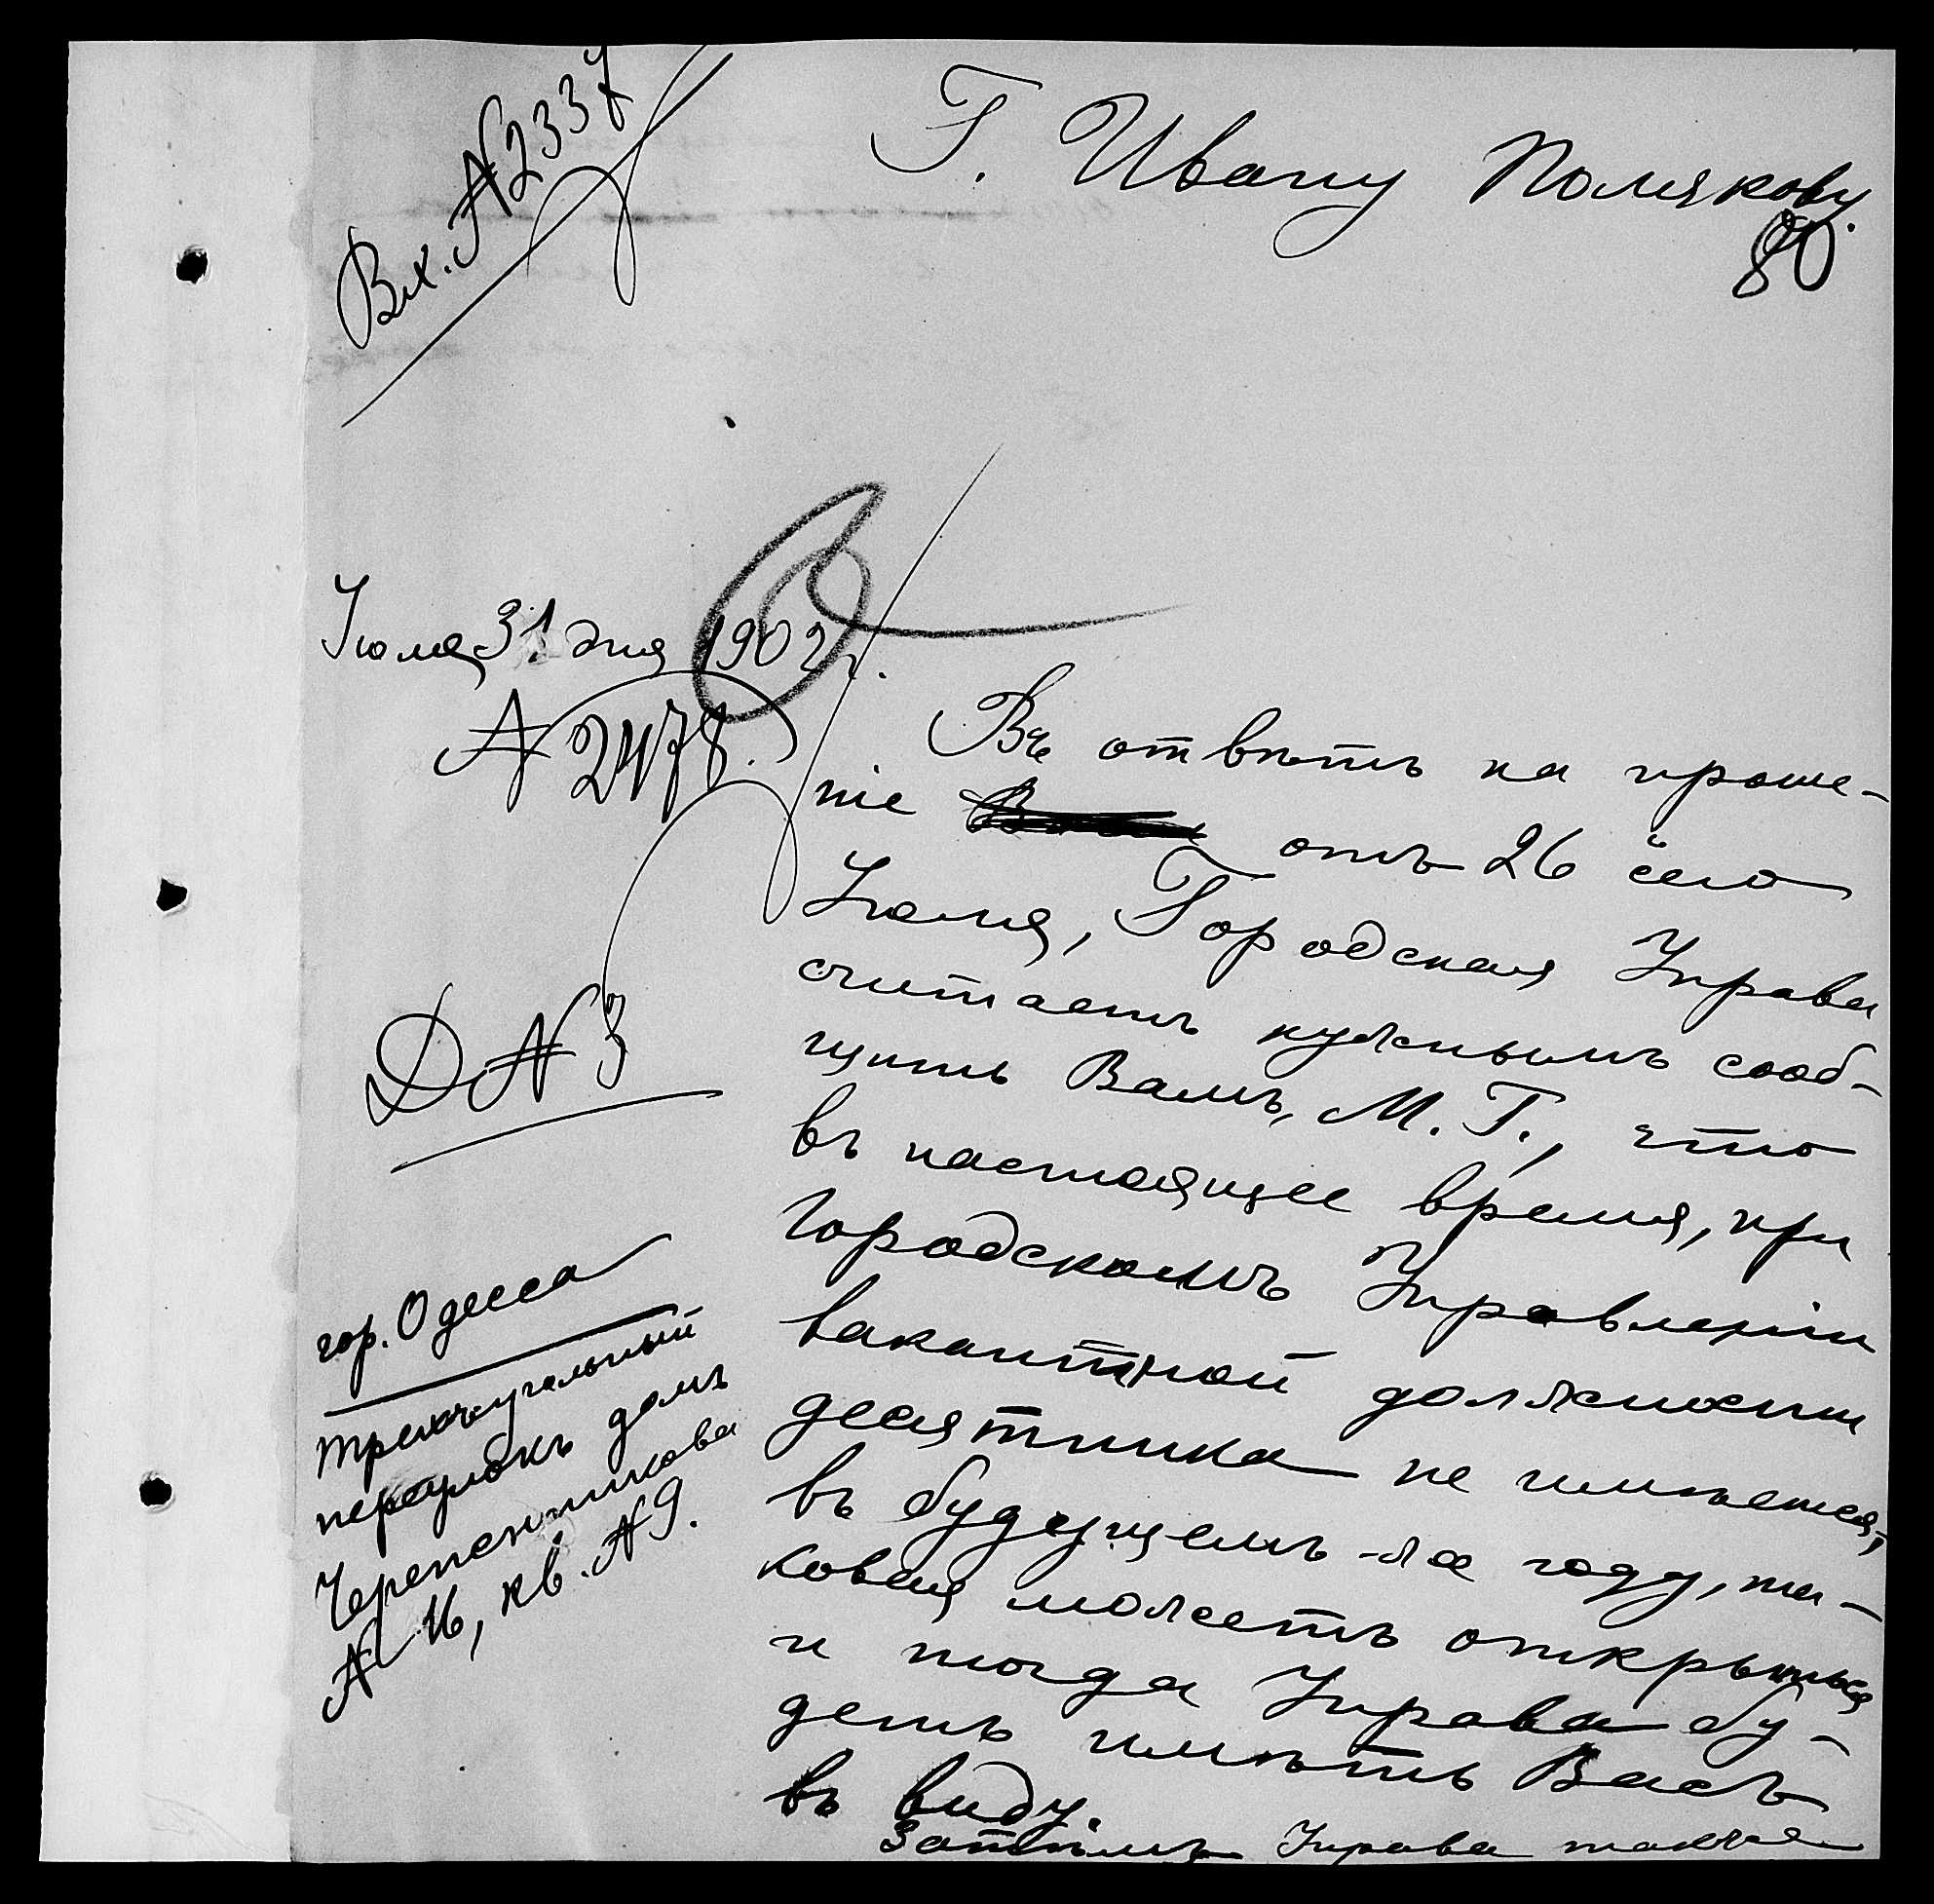 Вх. № 2337
Г. Ивану Полякову.
80
Іюля 31 дня 1902 г.
№ 2478.
Д № 3
гор. Одесса
Трехъугальный
переулокъ домъ
Черепенникова
№ 16, кв. № 9.
Въ отвѣтъ на проше-
ніе отъ 26 сего
Іюля, Городская Управа
считаетъ нужнымъ сооб-
щить Вамъ, М. Г., что
въ настоящее время, при
Городскомъ Управленіи
вакантной должности
десятника не имѣется,
въ будущемъ-же году, та-
ковая можетъ открыться
и тогда Управа бу-
детъ имѣть Васъ
въ виду.
Затѣмъ Управа также